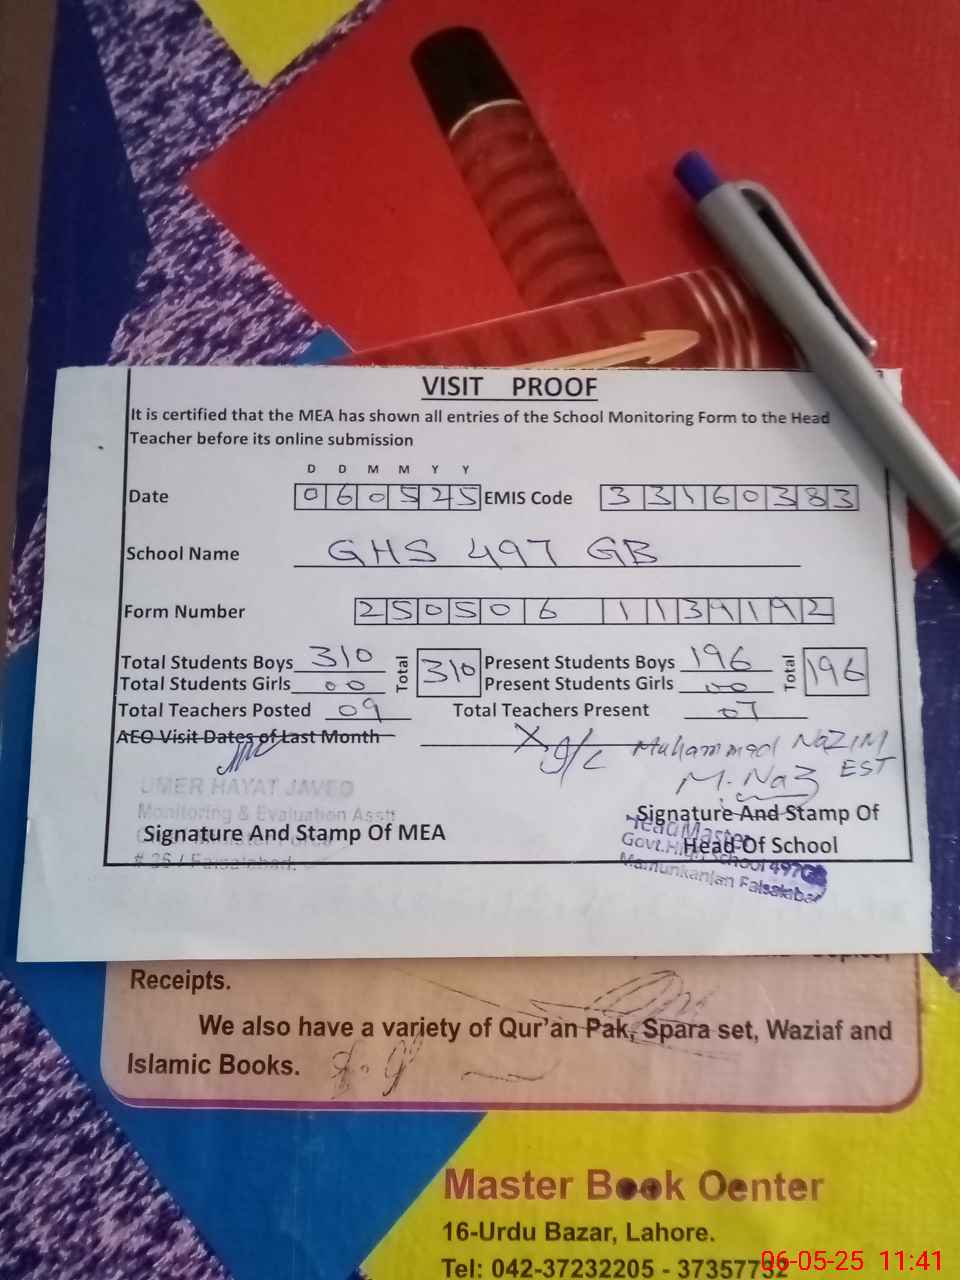 VISIT PROOF
It is certified that the MEA has shown all entries of the School Monitoring Form to the Head
Teacher before its online submission
D D M M Y Y
Date 060525 EMIS Code 33160383
School Name GHS 497 GB
Form Number 250506 1139192
Total Students Boys 310 Total 310 Present Students Boys 196 Total 196
Total Students Girls 00 Present Students Girls 00
Total Teachers Posted 09 Total Teachers Present 07
AEO Visit Dates of Last Month X I/C Muhammad NAZIM
EST
M. Naz
UMER HAYAT JAVED
Monitoring & Evaluation Asstt
Signature And Stamp Of MEA
# 35 / Faisalabad.
Signature And Stamp Of
Head Of School
Head Master
Govt. High School 497GB
Mamunkanjan Faisalabad
Receipts.
We also have a variety of Qur'an Pak, Spara set, Waziaf and
Islamic Books.
Master Book Center
16-Urdu Bazar, Lahore.
Tel: 042-37232205 - 37357732
06-05-25 11:41